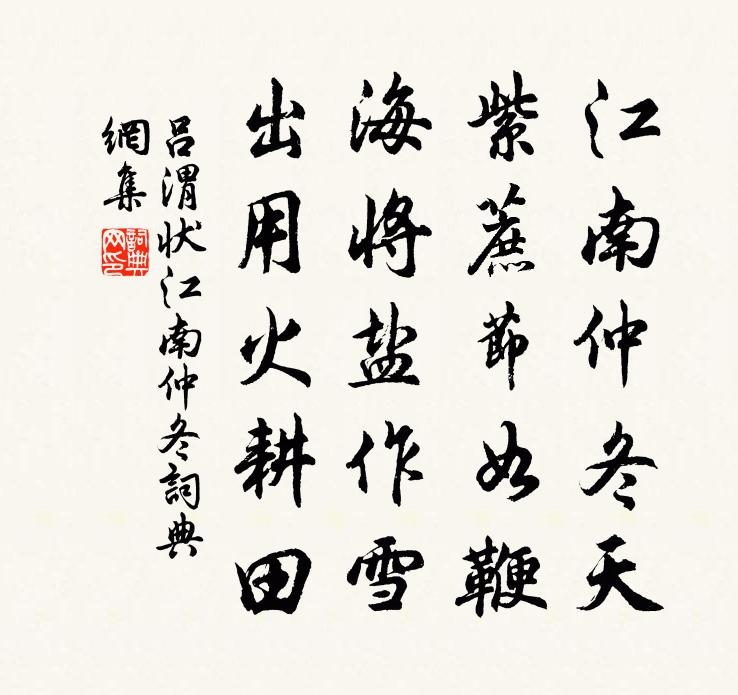 江南仲冬天
紫蔗節如鞭
海將盐作雪
出用火耕田
吕渭状江南仲冬詞典
網集
詞典
网印